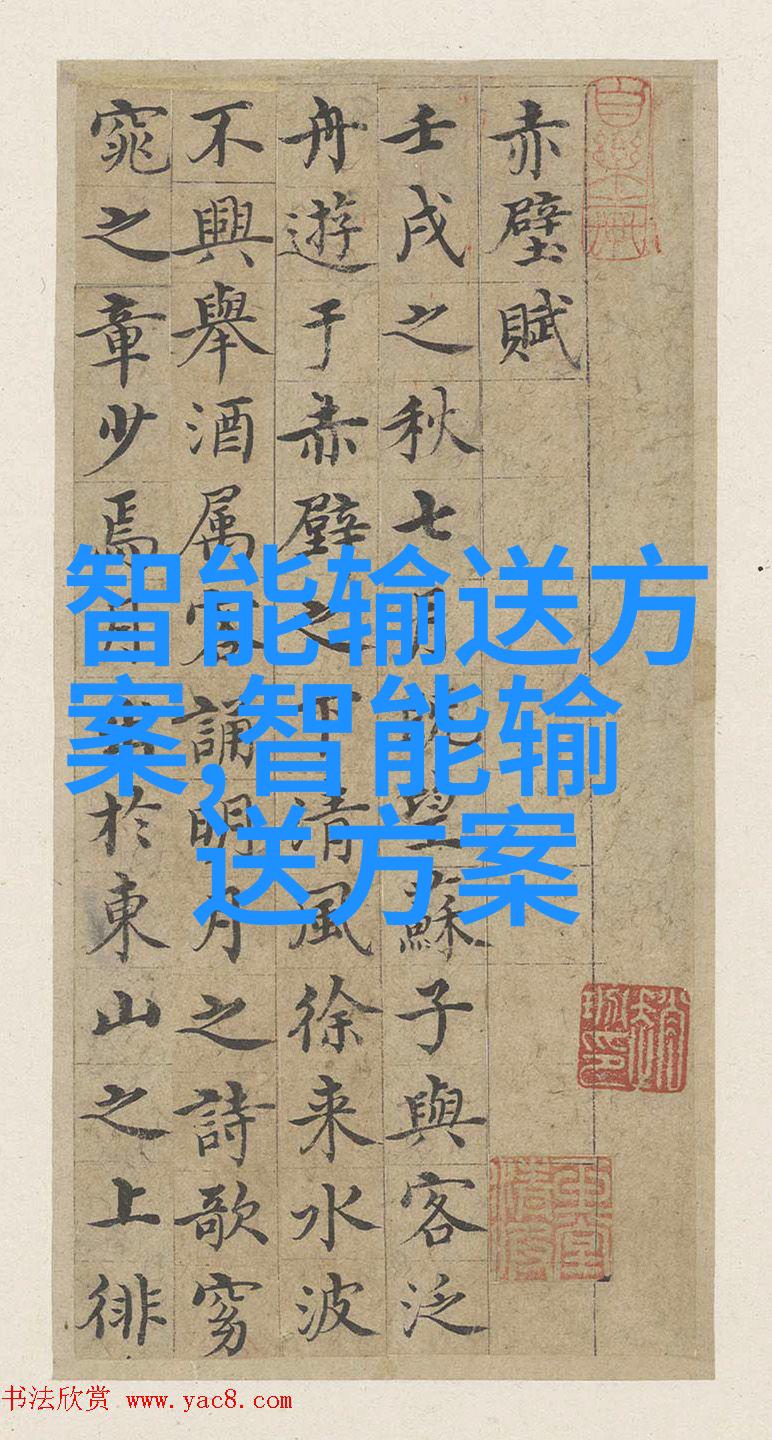 赤壁賦
壬戌之秋七月既望蘇子與客泛
舟遊于赤壁之下清風徐来水波
不興舉酒属客誦明月之詩歌窈
窕之章少焉月出於東山之上徘
智能输送方
案,智能输
送方案
书法欣赏 www.yac8.com